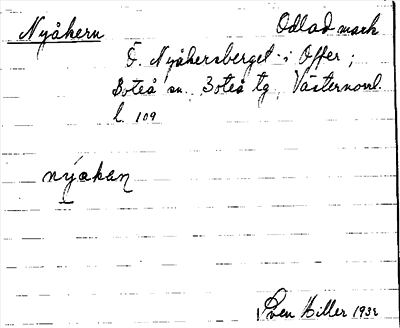 Nyåkern Odlad mark
Ö. Nyåkersberget i Offer;
Boteå sn, Boteå tg, Västernorrl.
l. 109
nýakan
Sven Hiller 1932